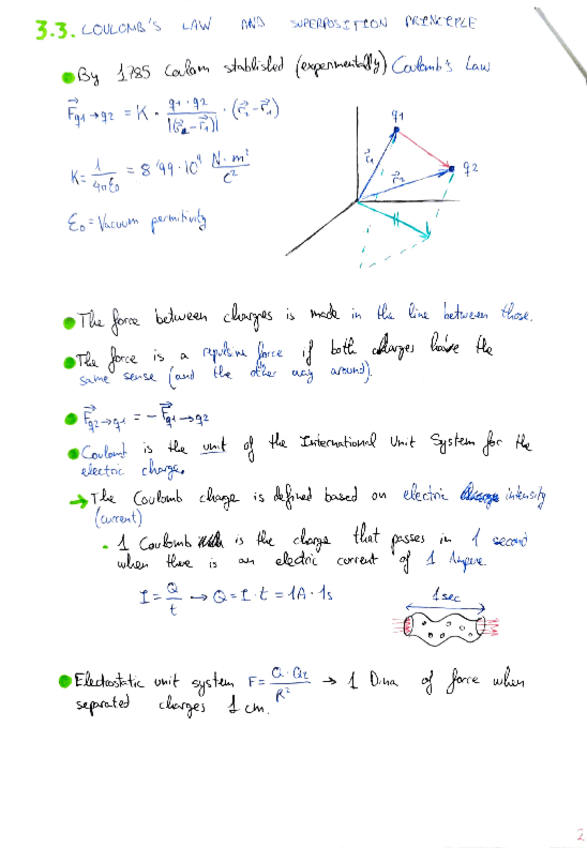 3.3. COULOMB'S LAW AND SUPERPOSITION PRINCIPLE
By 1785 Coulom stablished (experimentally) Coulomb's Law
F⃗q1→q2 = K · q1 · q2 / |(r⃗2 - r⃗1)| · (r⃗2 - r⃗1)
q1
r⃗1
r⃗2
q2
K = 1/4πε0 = 8'99 · 10⁹ N · m²/C²
ε0 = Vacuum permitivity
The force between charges is made in the line between those.
The force is a repulsive force if both charges have the
same sense (and the other way around).
F⃗q2→q1 = - F⃗q1→q2
Coulomb is the unit of the International Unit System for the
electric charge.
→ The Coulomb charge is defined based on electric intensity
(current)
1 Coulomb is the charge that passes in 1 second
when there is an electric current of 1 Ampere
I = Q/t → Q = I · t = 1A · 1s
1 sec
Electrostatic unit system F = Q · Q2 / R² → 1 Dina of force when
separated charges 1 cm.
2